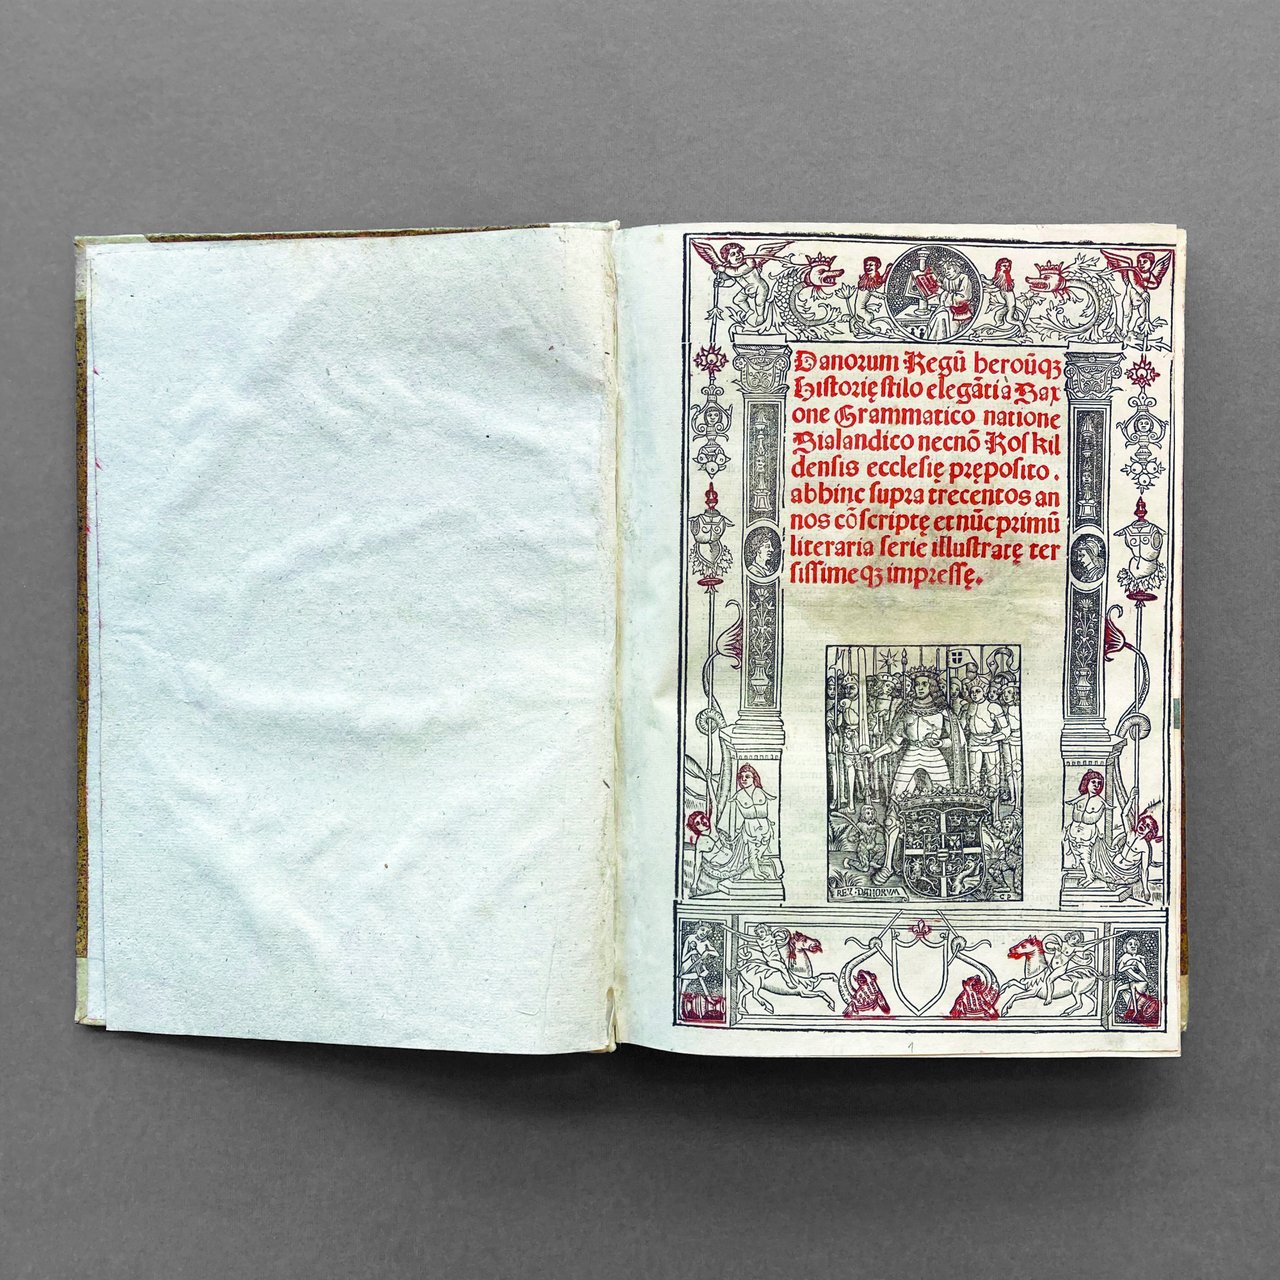 Danorum Regū heroūqꝫ
Historię stilo elegāti à Sax
one Grammatico natione
Sialandico necnō Roskil
densis ecclesię pręposito.
abhinc supra trecentos an
nos cōscriptę et nūc primū
literaria serie illustratę ter
sissimeqꝫ impressę.
REX DANORVM
C P
1